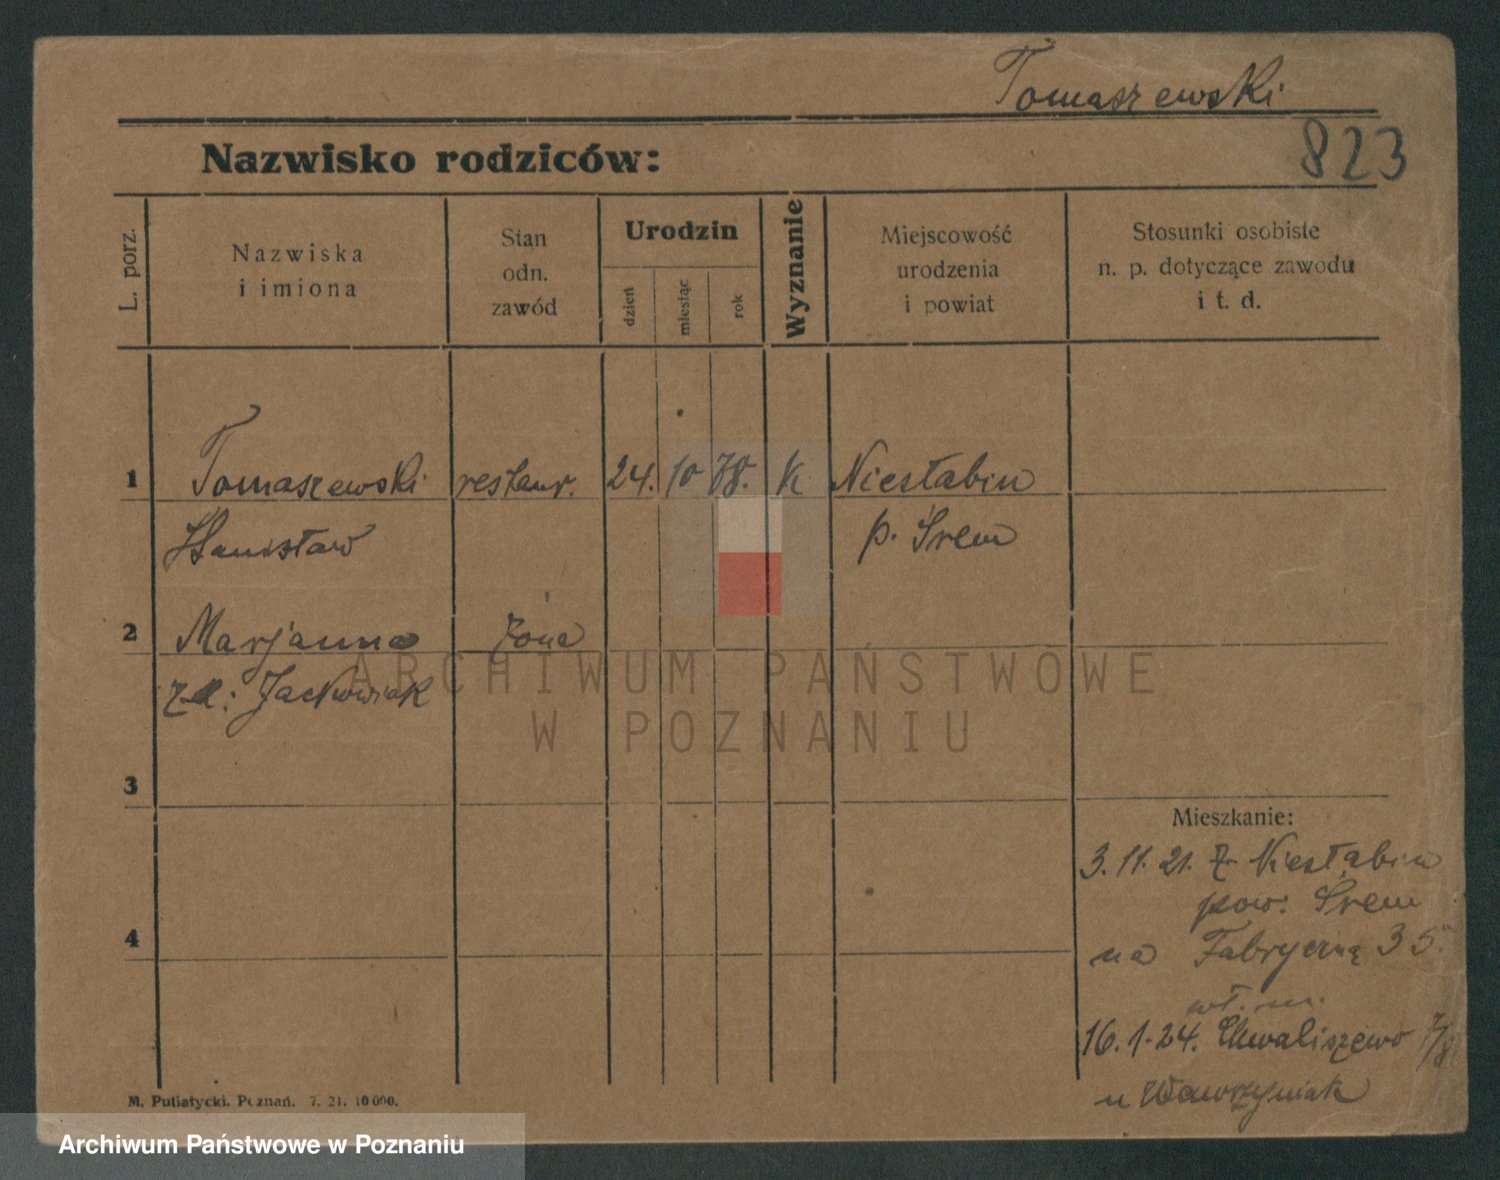 Tomaszewski
823
Nazwisko rodziców:
L. porz.
Nazwiska
i imiona
Stan
odn.
zawód
Urodzin
dzień
miesiąc
rok
Wyznanie
Miejscowość
urodzenia
i powiat
Stosunki osobiste
n. p. dotyczące zawodu
i t. d.
1 Tomaszewski restaur. 24. 10 78. k Niesłabin
Stanisław p. Śrem
2 Marjanna żona
z d: Jackowiak
3
Mieszkanie:
3.11.21. z Niesłabin
pow. Śrem
4
na Fabryczną 35.
wł. m.
16.1.24. Chwaliszewo 7/8
u Wawrzyniak
M. Putiatycki. Poznań. 7. 21. 10 000.
ARCHIWUM PAŃSTWOWE
W POZNANIU
Archiwum Państwowe w Poznaniu